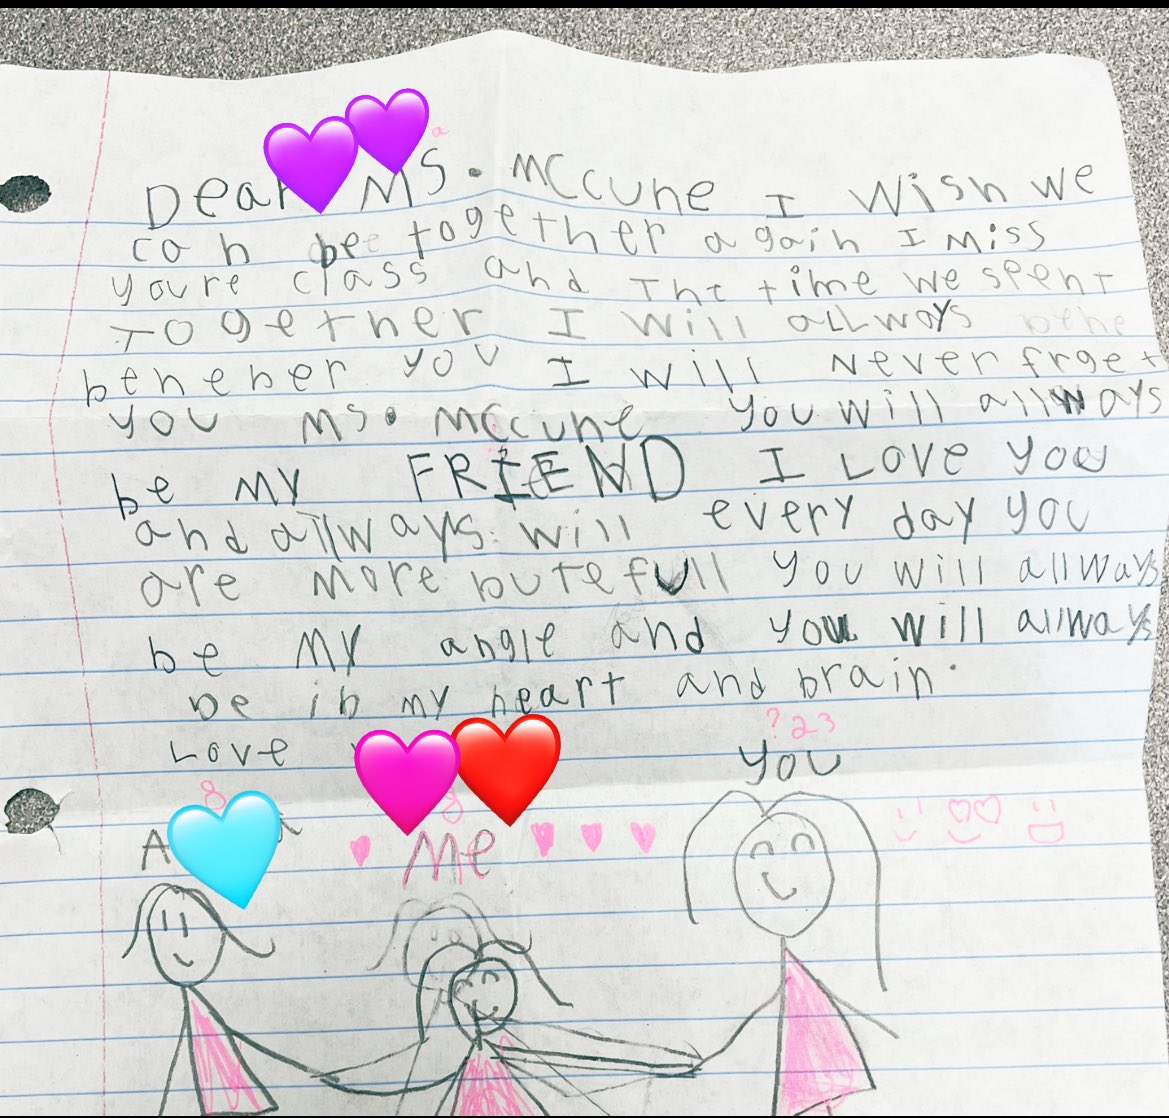 a
Dear MS. MCcune I wish we
can be together again I miss
youre class and The time we spent
Together I will aLLways bene
beneber you I will Never frget
you Ms. MCcune you will allways
be my FRIEND I LOVE you
and allways will every day you
are more butefull you will allways
be MY angle and you will allways
be in my heart and brain.
Love
? 23
YOU
8 8
A a Me